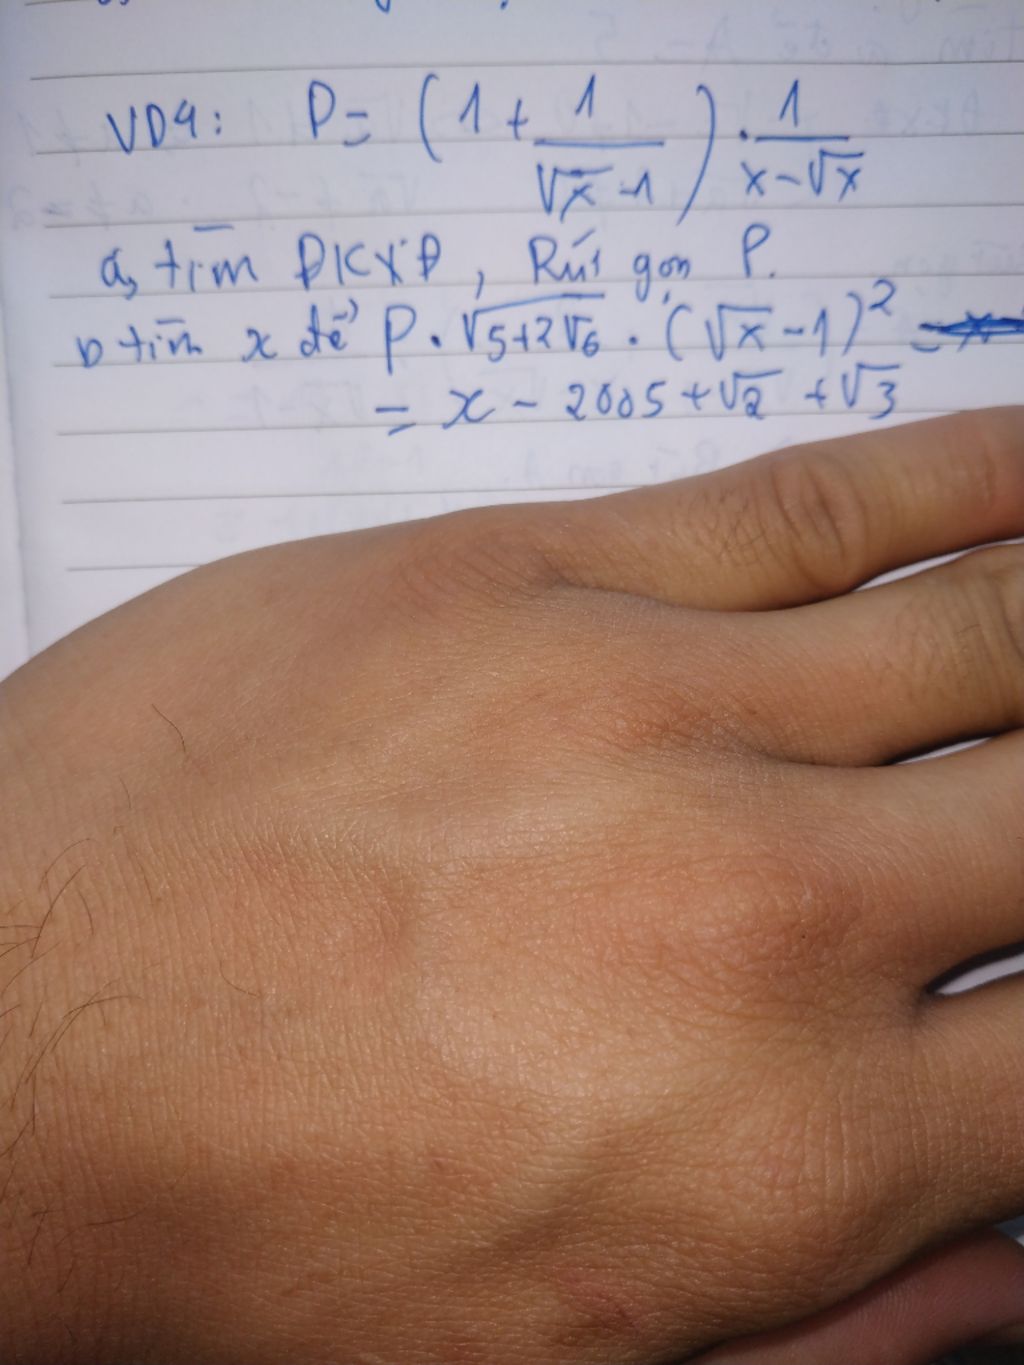 VD4: P = (1 + 1/(√x - 1)) · 1/(x - √x)
a, tìm ĐKXĐ, Rút gọn P.
b tìm x để P · √(5+2√6) · (√x - 1)²
= x - 2005 + √2 + √3